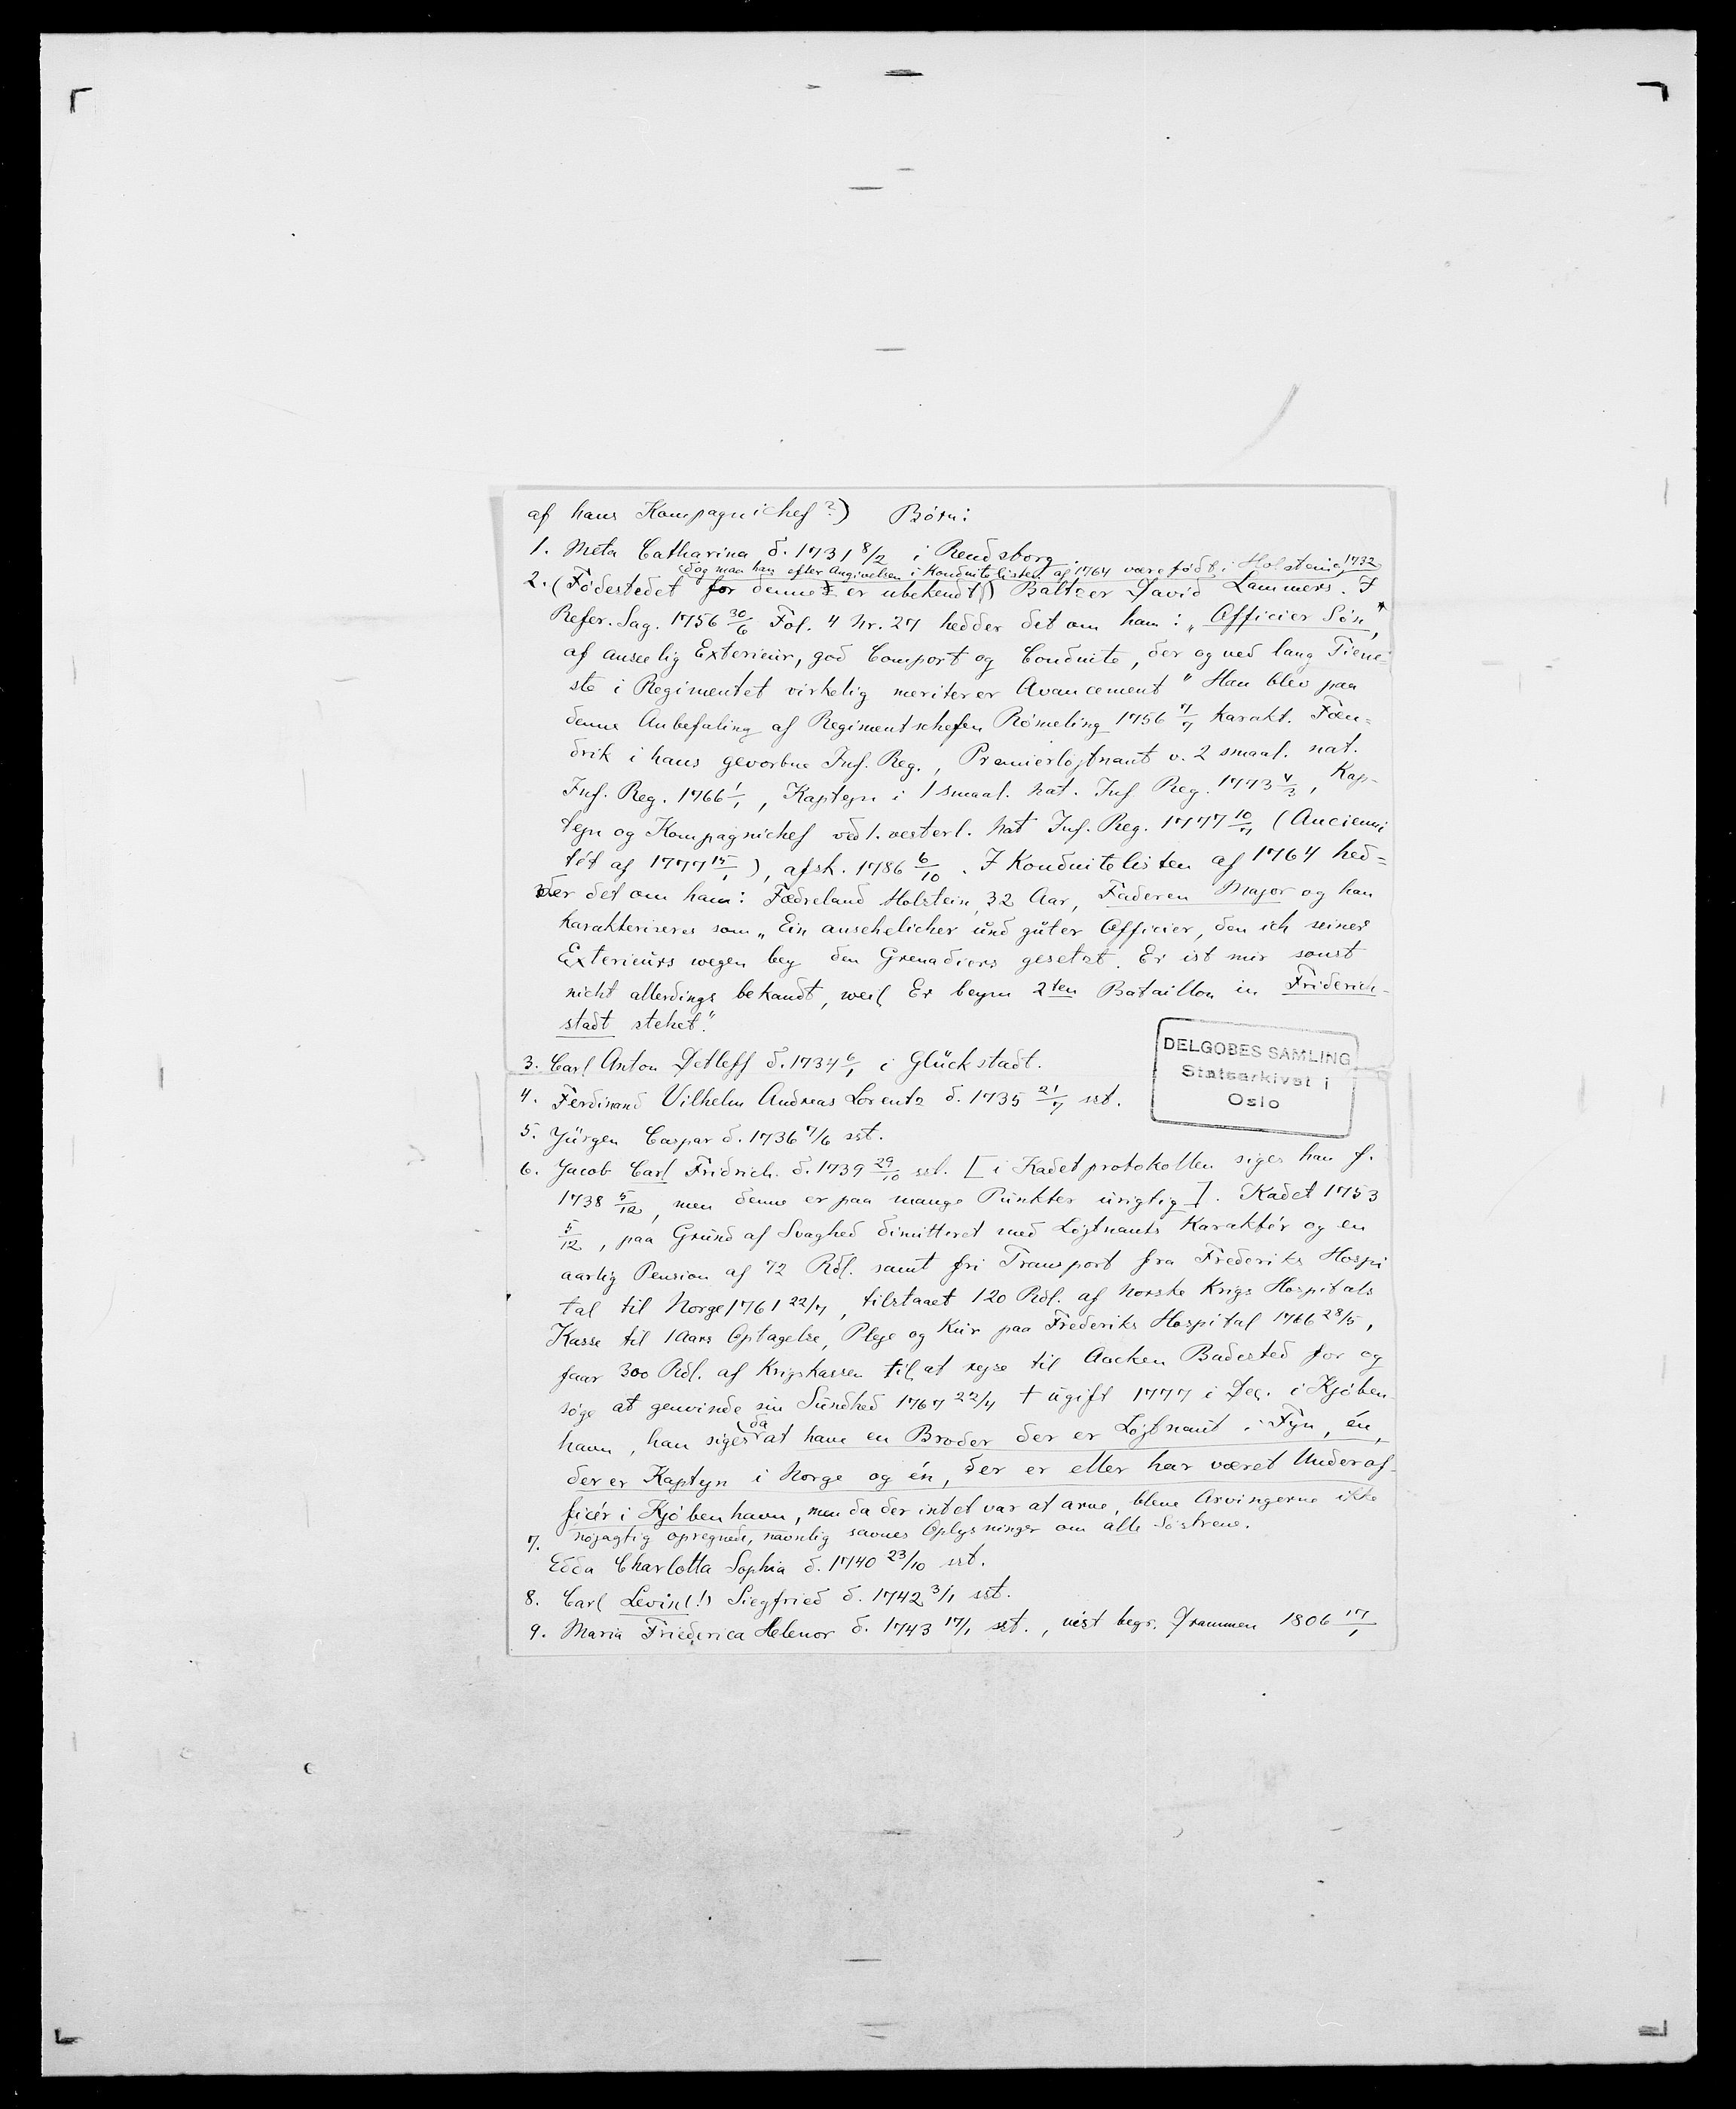 af hans Kompagnichef?) Börn:
1. Meta Catharina d. 1731 8/2 i Rendsborg.
(dog maa han efter Angivelsen i Konduitelisten af 1764 være født i Holstein c. 1732
2. (Födestedet for denne er ubekendt) Baltzer David Lammers. I
Refer. Sag. 1756 30/6 Fol. 4 Nr. 27 hedder det om ham: „Officier Sön,
af anseelig Exterieur, god Comport og Conduite, der og ved lang Tiene-
ste i Regimentet virkelig meriterer Avancement" Han blev paa
denne Anbefaling af Regimentschefen Römeling 1756 7/7 karakt. Fæn=
drik i hans gevorbne Inf. Reg., Premierlöjtnant v. 2 smaal. nat.
Inf. Reg. 1766 1/1, Kaptejn i 1 smaal. nat. Inf Reg. 1773 4/3, Kap-
tejn og Kompagnichef ved 1. vesterl. nat Inf. Reg. 1777 10/7 (Ancienni
tét af 1777 15/1), afsk. 1786 6/10. I Konduitelisten af 1764 hed=
der det om ham: Fædreland Holstein, 32 Aar, Faderen Major og han
karakteriseres som „Ein ansehelicher und guter Officier, den ich seines
Exterieurs wegen bey den Grenadiers gesetzt. Er ist mir sonst
nicht allerdings bekandt, weil Er beym 2ten Bataillon in Friderich-
stadt stehet."
3. Carl Anton Detleff d. 1734 6/1 i Glückstadt.
DELGOBES SAMLING
Statsarkivet i
Oslo
4. Ferdinand Vilhelm Andreas Lorentz d. 1735 21/7 sst.
5. Jürgen Caspar d. 1736 7/6 sst.
6. Jacob Carl Fridrich d. 1739 29/10 sst. [i Kadetprotokollen siges han f.
1738 5/12, men denne er paa mange Punkter urigtig]. Kadet 1753
5/12, paa Grund af Svaghed dimitteret med Löjtnants Karaktér og en
aarlig Pension af 72 Rdl. samt fri Transport fra Frederiks Hospi
tal til Norge 1761 22/7, tilstaaet 120 Rdl. af Norske Krigs Hospitals
Kasse til 1 Aars Optagelse, Pleje og Kur paa Frederiks Hospital 1766 28/5,
faar 300 Rdl. af Krigskassen til at rejse til Aacken Badested for og
söge at genvinde sin Sundhed 1767 22/4 † ugift 1777 i Dec. i Kjöben-
havn, han siges da at have en Broder der er Löjtnant i Fyn, én,
der er Kaptejn i Norge og én, der er eller har været Underof-
ficér i Kjöbenhavn, men da der intet var at arve, bleve Arvingerne ikke
nöjagtig opregnede, navnlig savnes Oplysninger om alle Söstrene.
7. Edda Charlotta Sophia d. 1740 23/10 sst.
8. Carl Levin(!) Siegfried d. 1742 3/1 sst.
9. Maria Friederica Helenor d. 1743 17/1 sst., vist begr. Drammen 1806 17/1